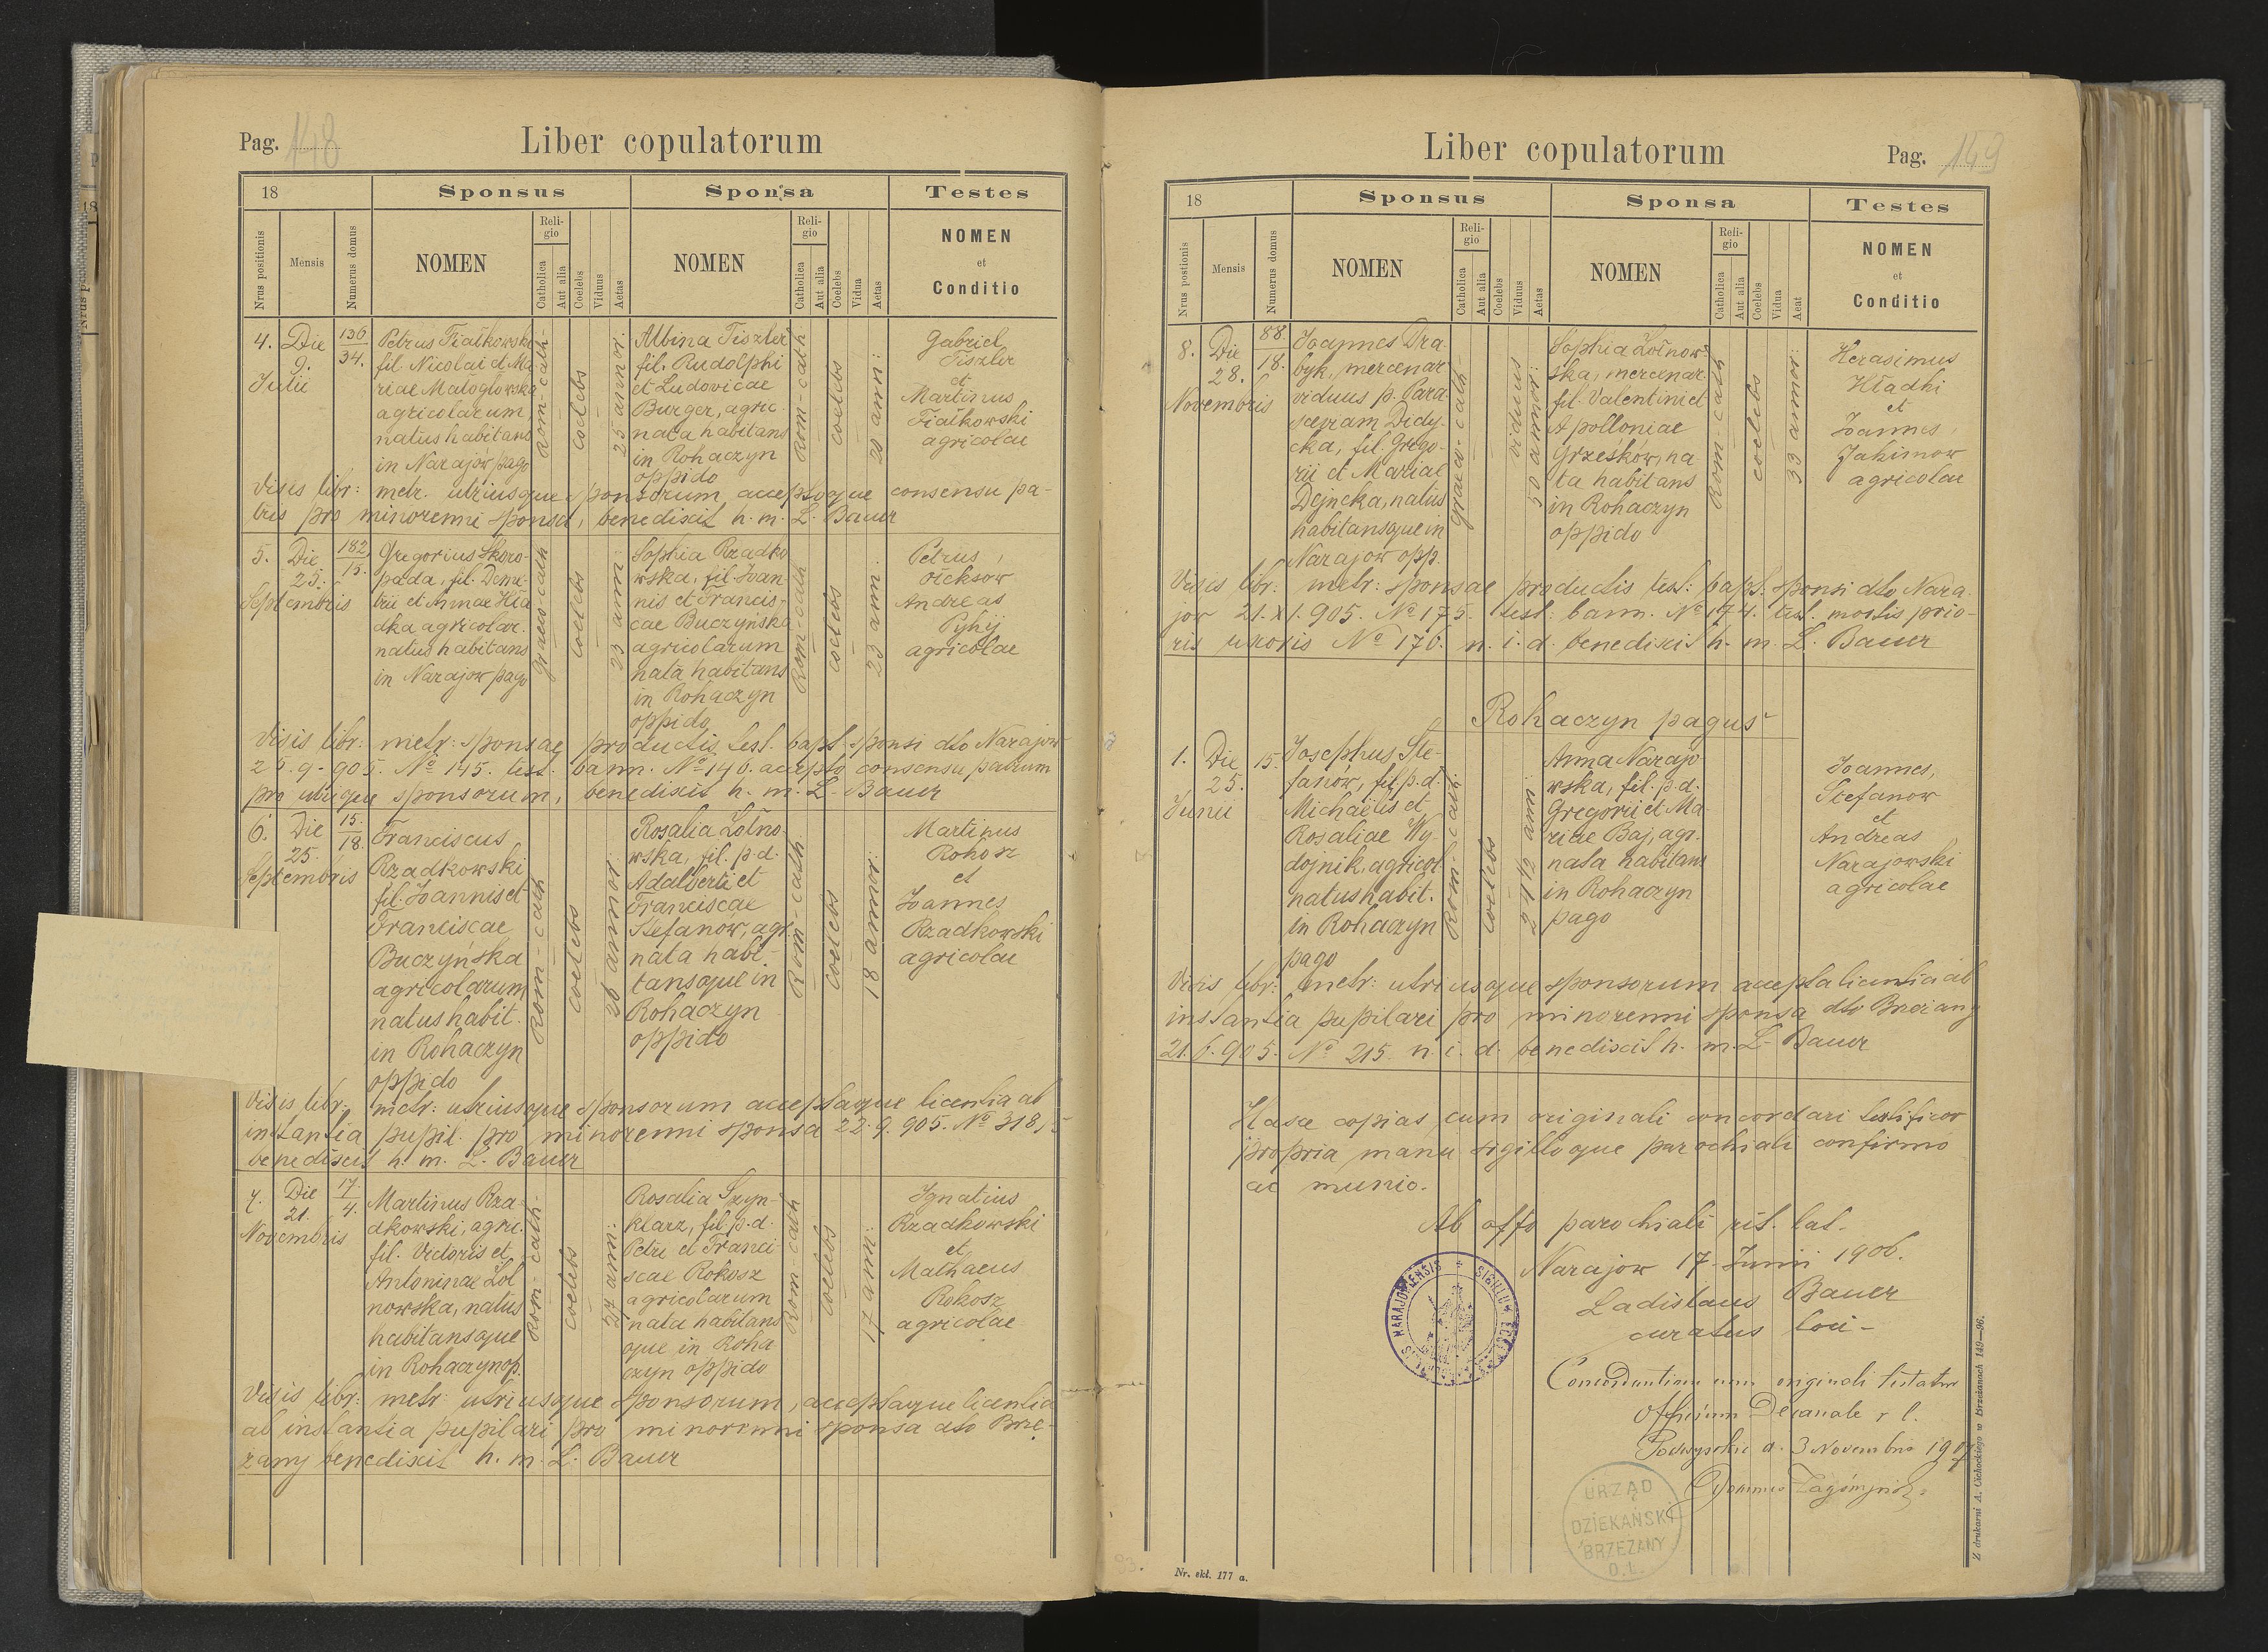 Pag. 148
Liber copulatorum
18
Sponsus
Sponsa
Testes
Nrus positionis
Mensis
Numerus domus
NOMEN
Religio
Catholica
Aut alia
Coelebs
Viduus
Aetas
NOMEN
Religio
Catholica
Aut alia
Coelebs
Vidua
Aetas
NOMEN
et
Conditio
4.
Die
9.
Julii
136
34.
Petrus Fiałkowski
fil. Nicolai et Ma
riae Małogłowska
agricolarum
natus habitans
in Narajów pago
Rom-cath-
coelebs
25 annor:
Albina Tiszler
fil. Rudolphi
et Ludovicae
Burger, agric
nata habitans
in Rohaczyn
oppido
Rom-cath
coelebs
20 ann:
Gabriel
Tiszler
et
Martinus
Fiałkowski
agricolae
Visis libr: metr. utriusque sponsorum, acceptoque consensu pa-
tris pro minorenni sponsa, benedixit h. m. L. Bauer
5.
Die
25.
Septembris
182
15.
Gregorius Skoro-
pada, fil. Deme-
trii et Annae Hła
dka agricolar.
natus habitans
in Narajow pago
graeco-cath
coelebs
23 ann
Sophia Rzadko
wska, fil. Joan-
nis et Francis-
cae Buczyńska
agricolarum
nata habitans
in Rohaczyn
oppido
Rom-cath
coelebs
23 ann.
Petrus
Ołeksow
Andreas
Pyhij
agricolae
Visis libr: metr: sponsae productis test. bapt. sponsi dto Narajow
25.9.905. No 145. test. bann. No 146. accepto consensu patrum
pro utroque sponsorum, benedixit h. m. L. Bauer
6.
Die
25.
Septembris
15.
18.
Franciscus
Rzadkowski
fil. Joannis et
Franciscae
Buczyńska
agricolarum
natus habit.
in Rohaczyn
oppido
Rom-cath
coelebs
26 annor:
Rosalia Żółno-
wska, fil. p.d.
Adalberti et
Franciscae
Stefanów, agr.
nata habi-
tansque in
Rohaczyn
oppido
Rom-cath
coelebs
18 annor:
Martinus
Rokosz
et
Joannes
Rzadkowski
agricolae
Visis libr: metr: utriusque sponsorum acceptaque licentia ab
instantia pupil. pro minorenni sponsa 22.9.905. No 318,
benedixit h. m. L. Bauer
7.
Die
21.
Novembris
17.
4.
Martinus Rza-
dkowski, agric.
fil. Victoris et
Antoninae Żół
nowska, natus
habitansque
in Rohaczyn op.
Rom-cath-
coelebs
27 ann:
Rosalia Szyn-
klarz, fil. p.d.
Petri et Franci
scae Rokosz
agricolarum
nata habitans
que in Roha
czyn oppido
Rom-cath
coelebs
17 ann:
Ignatius
Rzadkowski
et
Mathaeus
Rokosz
agricolae
Visis libr: metr: utriusque sponsorum, acceptaque licentia
ab instantia pupilari pro minorenni sponsa dto Brze-
żany benedixit h. m. L. Bauer
Liber copulatorum
Pag. 149
18
Sponsus
Sponsa
Testes
Nrus postionis
Mensis
Numerus domus
NOMEN
Religio
Catholica
Aut alia
Coelebs
Viduus
Aetas
NOMEN
Religio
Catholica
Aut alia
Coelebs
Vidua
Aeat
NOMEN
et
Conditio
8.
Die
28.
Novembris
88.
18.
Joannes Dra-
byk, mercenar
viduus p. Para-
sceviam Didy-
cka, fil. Grego-
rii et Mariae
Dejneka, natus
habitansque in
Narajów opp.
graeco-cath-
viduus
50 annor:
Sophia Żółnow-
ska, mercenar.
fil. Valentini et
Apolloniae
Grześków, na
ta habitans
in Rohaczyn
oppido
Rom-cath
coelebs
33 annor:
Herasimus
Hładki
et
Joannes
Jakimow
agricolae
Visis libr: metr: sponsae productis test: bapt: sponsi dto Nara-
jow 21.XI.905. No 175. test. bann. No 174. test. mortis prio-
ris uxoris No 176. n. i. d. benedixit h. m. L. Bauer
Rohaczyn pagus
1.
Die
25.
Junii
15.
Josephus Ste-
fanów, fil. p.d.
Michaëlis et
Rosaliae Wy-
dojnik, agricol
natus habit.
in Rohaczyn
pago
Rom-cath:
coelebs
24 1/2 ann:
Anna Narajo
wska, fil. p.d.
Gregorii et Ma-
riae Baj, agr.
nata habitans
in Rohaczyn
pago
Joannes
Stefanow
et
Andreas
Narajowski
agricolae
Visis libr: metr: utriusque sponsorum accepta licentia ab
instantia pupilari pro minorenni sponsa dto Brzeżany
21.6.905. No 215. n. i. d. benedixit h. m. L. Bauer
Hasce copias cum originali concordari testificor
propria manu sigilloque parochiali confirmo
ac munio.
Ab offo parochiali rit. lat.
Narajow 17. Junii 1906.
Ladislaus Bauer
curatus loci-
NARAJOWENSIS + SIGILLUM
Concordantiam cum originali testatur
Officium Decanale r l.
d. 3 Novembris 1907
URZĄD
DZIEKAŃSKI
BRZEŻANY
O.Ł.
Nr. skł. 177 a.
Z drukarni A. Cichockiego w Brzeżanach 149—96.